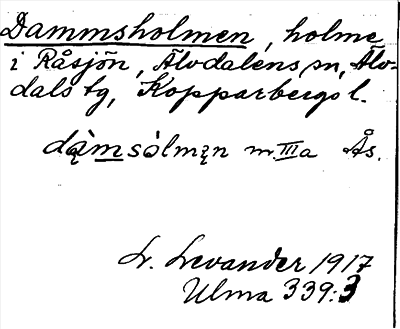 Dammsholmen, holme
i Råsjön, Älvdalens sn, Älv-
dals tg, Kopparbergs l.
dą̀msòlmęn m. IIIa Ås.
L. Levander 1917
Ulma 339:3